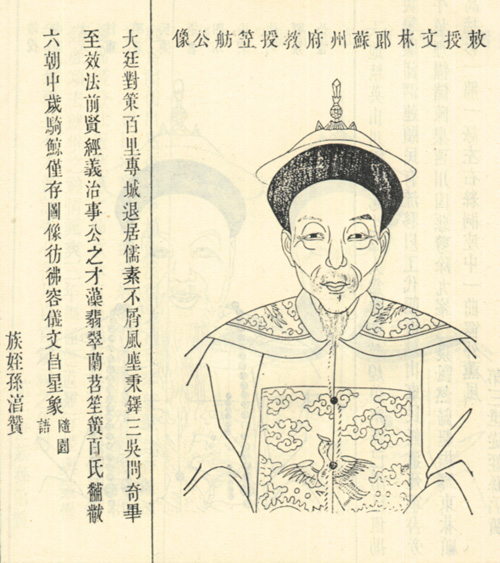 敕授文林郎蘇州府教授笠舫公像
大廷對策百里專城退居儒素不屑風塵秉鐸三吳問奇畢
至效法前賢經義治事公之才藻翡翠蘭苕笙簧百氏黼黻
六朝中歲騎鯨僅存圖像彷彿容儀文昌星象
隨園
語
族姪孫贊